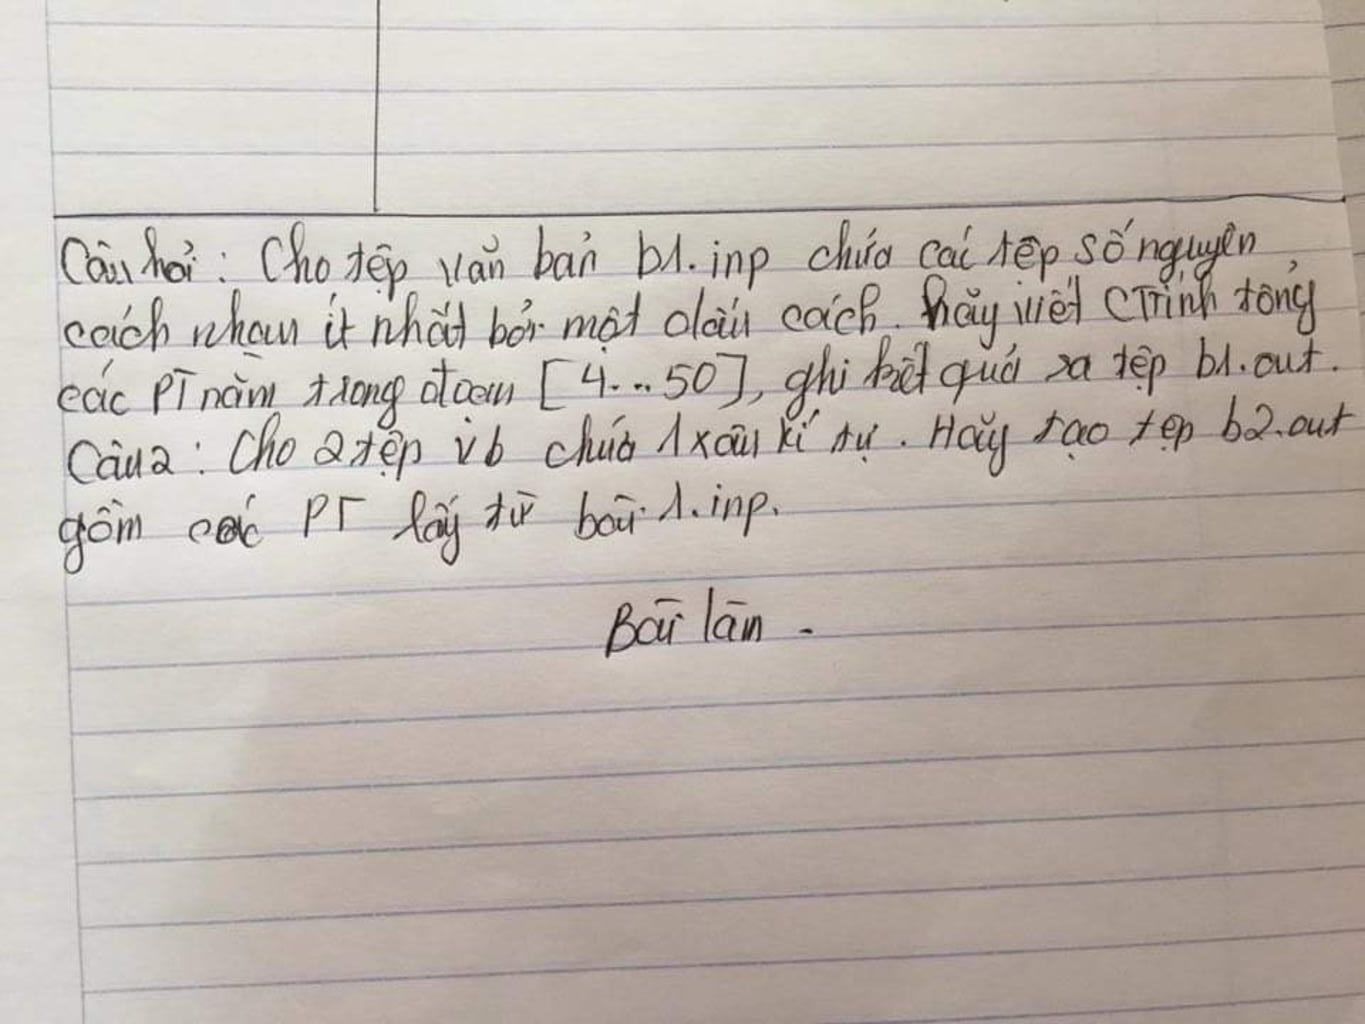 Câu hỏi: Cho tệp văn bản b1.inp chứa các tệp số nguyên
cách nhau ít nhất bởi một dấu cách. hãy viết CTrình tổng
các PT nằm trong đoạn [4...50], ghi kết quả ra tệp b1.out.
Câu 2: Cho 2 tệp vb chứa 1 xâu kí tự. Hãy tạo tệp b2.out
gồm các PT lấy từ bài 1.inp.
Bài làm -